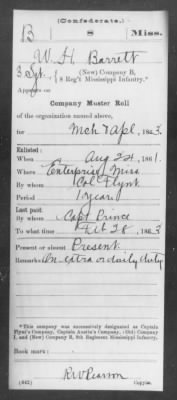 (Confederate.)
B 8 Miss.
W. H. Barrett
3 Sgt., (New) Company B,
8 Reg't Mississippi Infantry.*
Appears on
Company Muster Roll
of the organization named above,
for Mch & Apl, 1863.
Enlisted:
When Aug 24, 1861.
Where Enterprise Miss
By whom Col Flynt
Period 1 year
Last paid:
By whom Capt Prince
To what time Feb 28, 1863
Present or absent Present
Remarks: On extra or daily duty
*This company was successively designated as Captain
Flynt's Company, Captain Austin's Company, (Old) Company
I, and (New) Company B, 8th Regiment Mississippi Infantry.
Book mark:
R W Pearson
(642) Copyist.